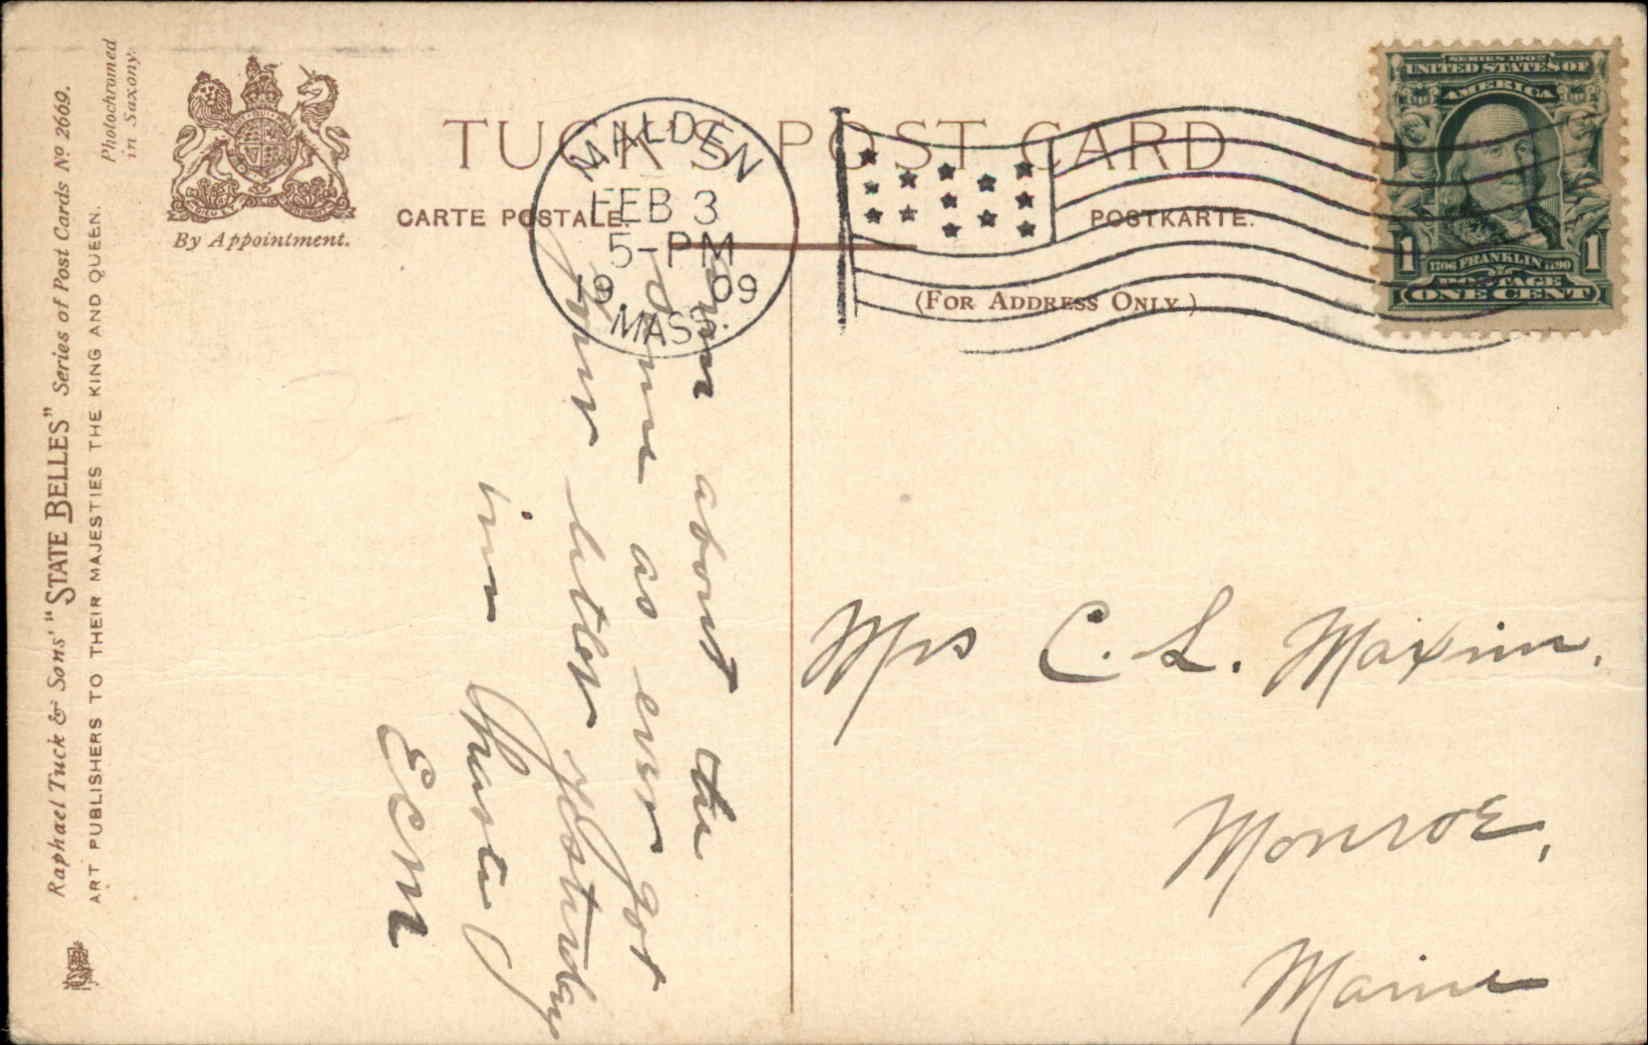 Raphael Tuck & Sons' "STATE BELLES" Series of Post Cards No. 2669.
ART PUBLISHERS TO THEIR MAJESTIES THE KING AND QUEEN.
Photochromed
in Saxony.
By Appointment.
TUCK'S POST CARD
CARTE POSTALE.
POSTKARTE.
(FOR ADDRESS ONLY.)
MALDEN
FEB 3
5-PM
19 09
MASS.
SERIES 1902
UNITED STATES OF
AMERICA
1 1706 FRANKLIN 1790 1
POSTAGE
ONE CENT
am about the
same as ever got
your letter yesterday
in
ECM
Mrs C. L. Maxim.
Monroe,
Maine